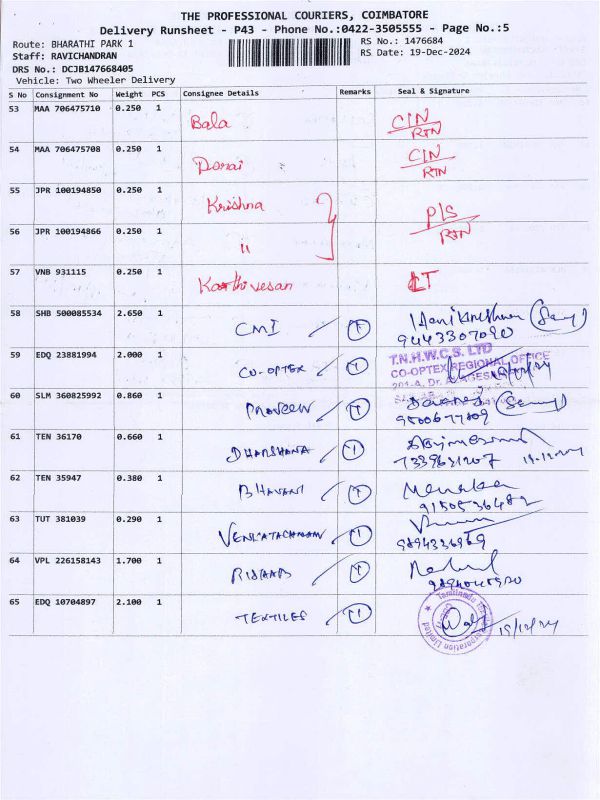 THE PROFESSIONAL COURIERS, COIMBATORE
Delivery Runsheet - P43 - Phone No.:0422-3505555 - Page No.:5
Route: BHARATHI PARK 1 RS No.: 1476684
Staff: RAVICHANDRAN RS Date: 19-Dec-2024
DRS No.: DCJB147668405
Vehicle: Two Wheeler Delivery
S No Consignment No Weight PCS Consignee Details Remarks Seal & Signature
53 MAA 706475710 0.250 1 Bala CIN
RTN
54 MAA 706475708 0.250 1 Dorai CIN
RTN
55 JPR 100194850 0.250 1 Krishna P/S
RTN
56 JPR 100194866 0.250 1 "
57 VNB 931115 0.250 1 Karthivesan LT
58 SHB 500085534 2.650 1 CMI 1
9443307090
59 EDQ 23881994 2.000 1 CO-OPTEX 1 T.N.H.W.C.S. LTD
CO-OPTEX REGIONAL OFFICE
60 SLM 360825992 0.860 1 PRAVEEN 1
9500677809
61 TEN 36170 0.660 1 DHARSHANA 1
7339631207 19-12-24
62 TEN 35947 0.380 1 BHAVANI 1 Menaka
9150536482
63 TUT 381039 0.290 1 VENKATACHALAM 1
9894336969
64 VPL 226158143 1.700 1 1
65 EDQ 10704897 2.100 1 TEXTILES 1 19/12/24